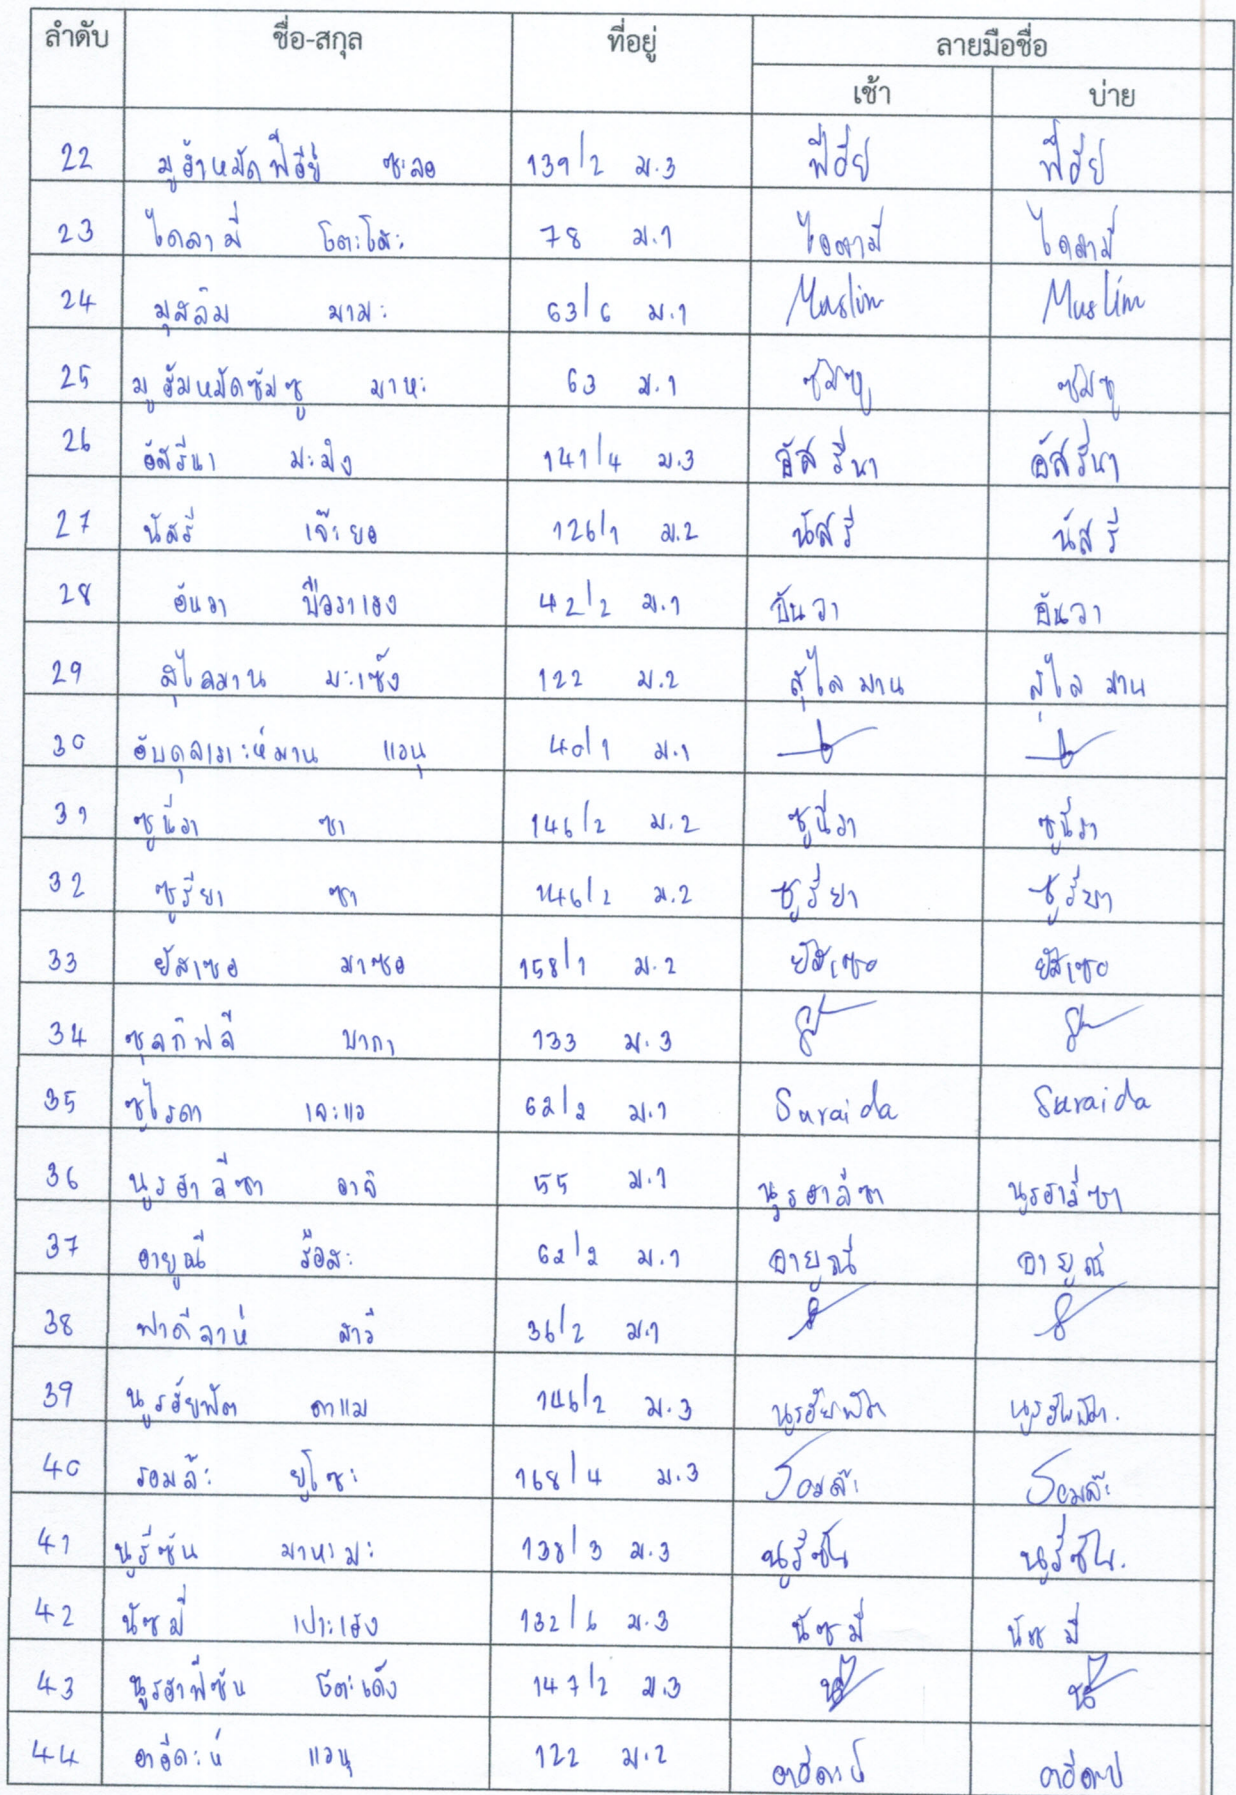 ลำดับ ชื่อ-สกุล ที่อยู่ ลายมือชื่อ
เช้า บ่าย
22 มูฮำหมัดฟีฮีย์ ซะลอ 139/2 ม.3 ฟีฮีย์ ฟีฮีย์
23 ไดลามี่ โตะโสะ 78 ม.1 ไดลามี่ ไดลามี่
24 มุสลิม มามะ 63/6 ม.1 Muslim Muslim
25 มูฮัมหมัดซัมซู มาหะ 63 ม.1 ซัมซู ซัมซู
26 อัสรีนา มะมิง 141/4 ม.3 อัสรีนา อัสรีนา
27 นัสรี เจ๊ะยอ 126/1 ม.2 นัสรี นัสรี
28 อันวา บือราเฮง 42/2 ม.1 อันวา อันวา
29 สุไลมาน มะเซ็ง 122 ม.2 สุไลมาน สุไลมาน
30 อับดุลเราะห์มาน แวนุ 40/1 ม.1
31 ซูนีวา ซา 146/2 ม.2 ซูนีวา ซูนีวา
32 ซูรียา ซา 146/2 ม.2 ซูรียา ซูรียา
33 ยัสเซอ มาซอ 158/1 ม.2 ยัสเซอ ยัสเซอ
34 ซุลกิฟลี บากา 133 ม.3
35 ซูไรดา เจะแว 62/2 ม.1 Suraida Suraida
36 นูรฮาลีซา อาจิ 55 ม.1 นูรฮาลีซา นูรฮาลีซา
37 อายูณี รือสะ 62/2 ม.1 อายูณี อายูณี
38 ฟาดีลาห์ สารี 36/2 ม.1
39 นูรฮัยฟัต ดาแม 146/2 ม.3 นูรฮัยฟัต นูรฮัยฟัต.
40 รอมล๊ะ ยูโซะ 168/4 ม.3 รอมล๊ะ รอมล๊ะ
41 นูรีซัน มาหามะ 138/3 ม.3 นูรีซัน นูรีซัน.
42 นัซมี่ เปาะเฮง 132/6 ม.3 นัซมี่ นัซมี่
43 นูรฮาฟีซัน โต๊ะเด็ง 147/2 ม.3
44 อาอีดะห์ แวนุ 122 ม.2 อาอีดะห์ อาอีดะห์